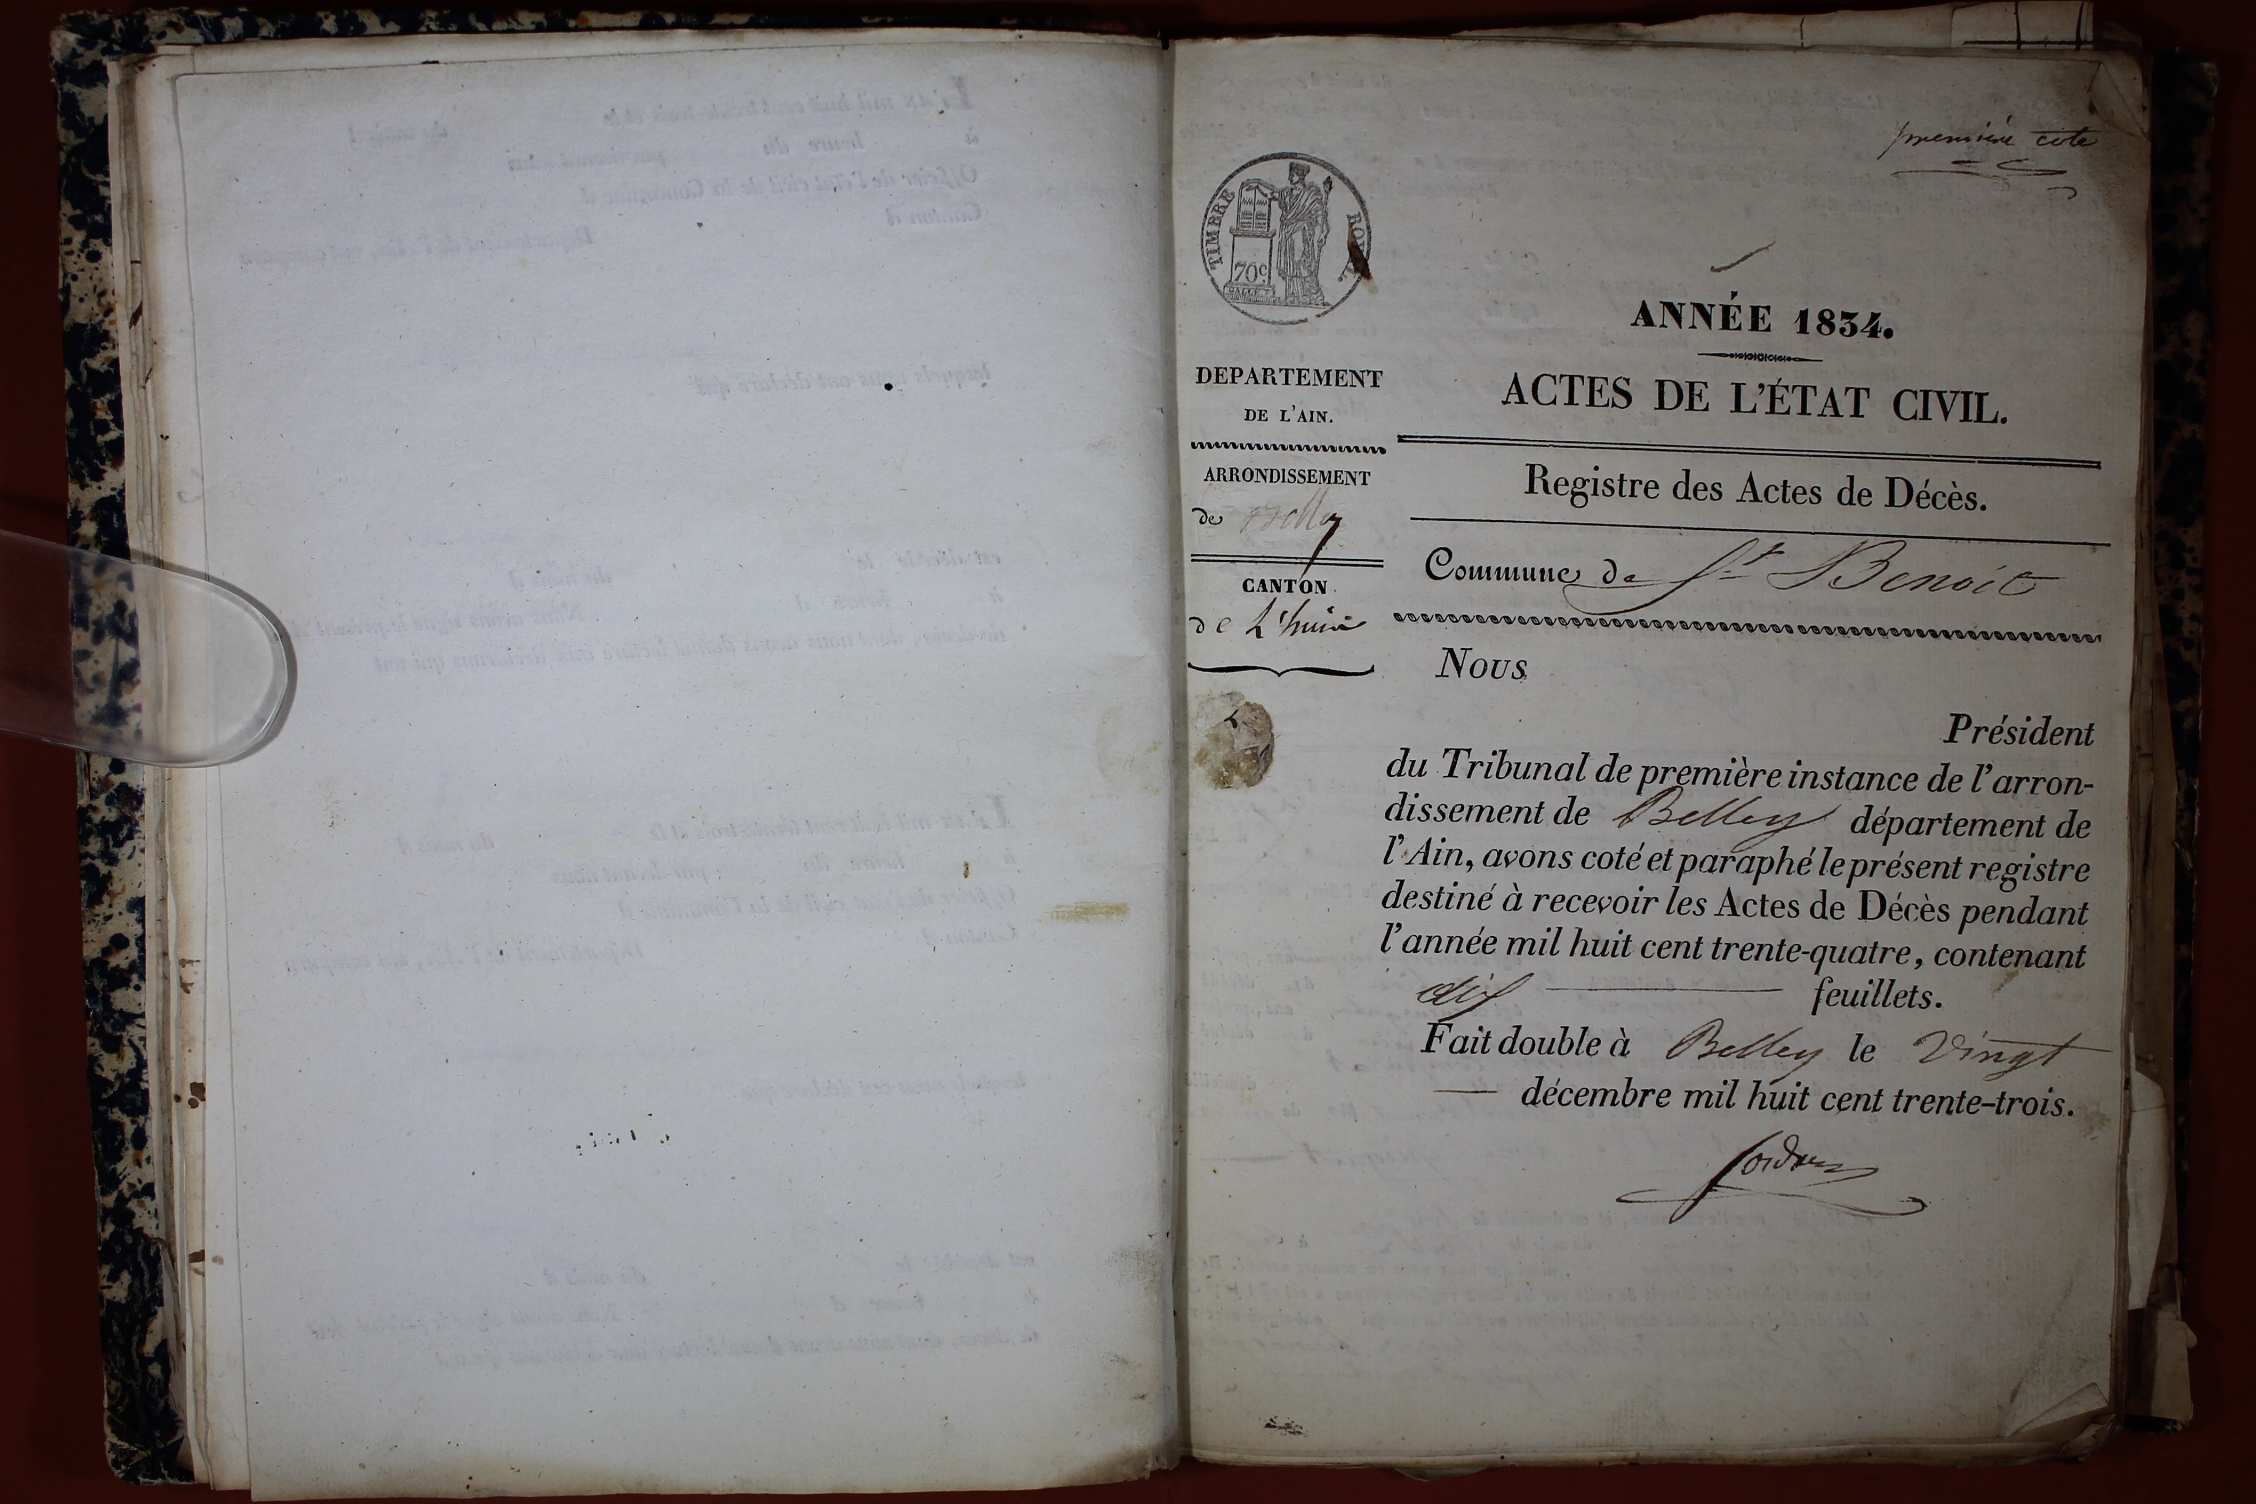 première cote
TIMBRE ROYAL
70c
ANNÉE 1834.
ACTES DE L'ÉTAT CIVIL.
DEPARTEMENT
DE L'AIN.
ARRONDISSEMENT
de Belley
CANTON
de L'huis
Registre des Actes de Décès.
Commune de St Benoit
Nous
Président
du Tribunal de première instance de l'arron-
dissement de Belley département de
l'Ain, avons coté et paraphé le présent registre
destiné à recevoir les Actes de Décès pendant
l'année mil huit cent trente-quatre, contenant
dix feuillets.
Fait double à Belley le Vingt
décembre mil huit cent trente-trois.